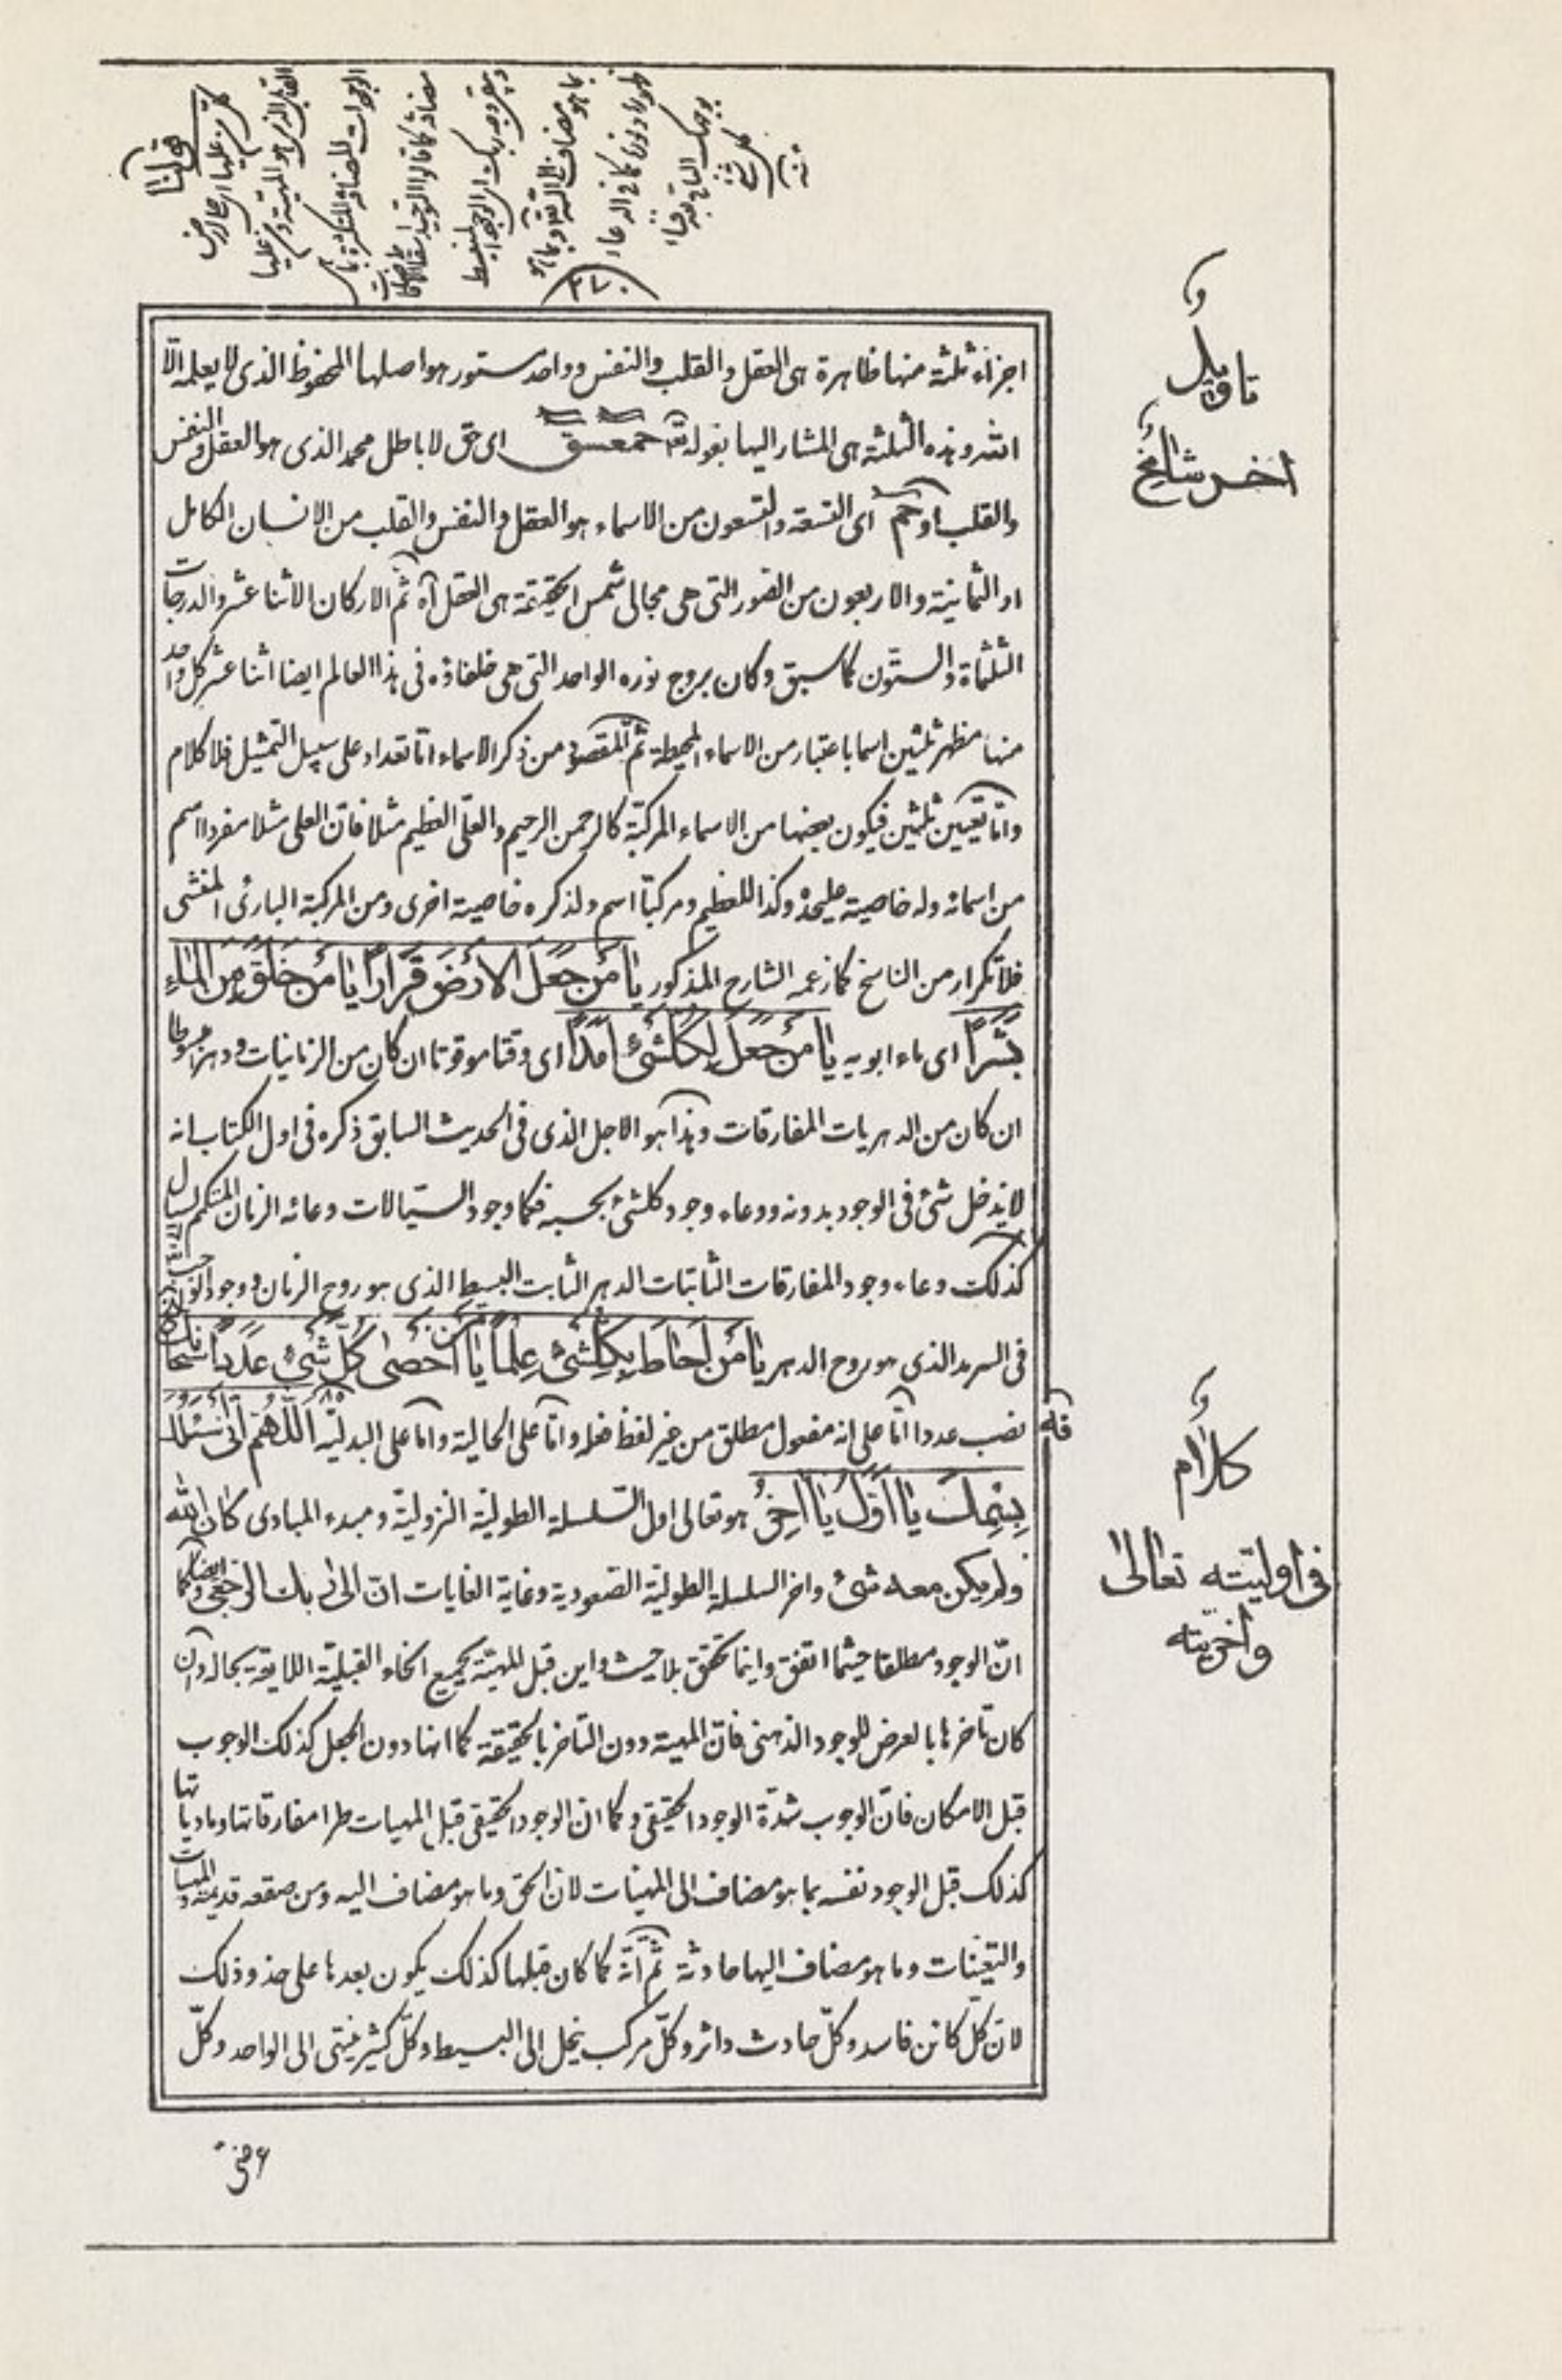 ٢٧٠
اجزاء ثلثة منها ظاهرة هى العقل والقلب والنفس وواحد مستور هو اصلها المحفوظ الذى لا يعلمه الّا
الله وهذه الثلثة هى المشار اليها بقوله تعالى حمعسق اى حق لا باطل محمد الذى هو العقل والنفس
والقلب او حم اى التسعة والتسعون من الاسماء هو العقل والنفس والقلب من الانسان الكامل
او الثمانية والاربعون من الصور التى هى مجالى شمس الحقيقة هى العقل آه ثم الاركان الاثنا عشر والدرجات
الثلثمأة والستّون كما سبق وكان بروج نوره الواحد التى هى خلفاؤه فى هذا العالم ايضا اثنا عشر كل واحد
منها مظهر ثلثين اسما باعتبار من الاسماء المحيطة ثم المقصود من ذكر الاسماء امّا تعداد على سبيل التمثيل فلا كلام
وامّا تعيين ثلثين فيكون بعضها من الاسماء المركبّة كالرحمن الرحيم والعلىّ العظيم مثلا فانّ العلى مثلا مفردا اسم
من اسمائه وله خاصية عليحدة وكذا العظيم ومركبّا اسم ولذكره خاصية اخرى ومن المركبة البارئ المنشى
فلا تكرار من الناسخ كما زعمه الشارح المذكور يا مَنْ جَعَلَ الاَرْضَ قَرَاراً يا مَنْ خَلَقَ مِنَ الْمَاءِ
بَشَراً اى ماء ابويه يا مَنْ جَعَلَ لِكُلِّشَىْءٍ اَمَداً اى وقتا موقوتا ان كان من الزمانيات ودهرا
ان كان من الدهريات المفارقات وهذا هو الاجل الذى فى الحديث السابق ذكره فى اول الكتاب انه
لا يدخل شئ فى الوجود بدونه ووعاء وجود كلشئ بحسبه فكما وجود السيالات وعائه الزمان المتكمم السيال
كذلك وعاء وجود المفارقات الثابتات الدهر الثابت البسيط الذى هو روح الزمان ووجود
فى السرمد الذى هو روح الدهر يا مَنْ اَحَاطَ بِكُلِّشَىْءٍ عِلْماً يا مَنْ اَحْصىٰ كُلَّ شَىْءٍ عَدَداً سُبْحَانَكَ
نصب عددا امّا على انه مفعول مطلق من غير لفظ فعله وامّا على الحالية وامّا على البدليّة اَللّٰهُمَّ اِنّى اَسْئَلُكَ
بِاسْمِكَ يا اَوَّلُ يا اٰخِرُ هو تعالى اول السّلسلة الطولية النزولية ومبدء المبادى كان الله
ولم يكن معه شئ واخر السلسلة الطولية الصعودية وغاية الغايات انّ الى ربك الرجعى وايضا كما
انّ الوجود مطلقا حيثما اتفق واينما تحقق بلا حيث واين قبل المهيّة بجميع انحاء القبليّة اللايقة بحاله وان
كان تأخرها بالعرض للوجود الذهنى فانّ المهية دون التأخر بالحقيقة كما انها دون الجعل كذلك الوجوب
قبل الامكان فانّ الوجوب شدّة الوجود الحقيقى وكما انّ الوجود الحقيقى قبل المهيات طرا مفارقاتها ومادياتها
كذلك قبل الوجود نفسه بما هو مضاف الى المهيات لان الحق وما هو مضاف اليه ومن صقعه قديمة والمهيات
والتعيّنات وما هو مضاف اليها حادثة ثم انّه كما كان قبلها كذلك يكون بعدها على حذو وذلك
لانّ كل كائن فاسد وكلّ حادث داثر وكلّ مركب ينحل الى البسيط وكلّ كثير ينتهى الى الواحد وكلّ
و
تاويل
اخر شامخ
و
كلام
فى اوليته تعالى
واخريته